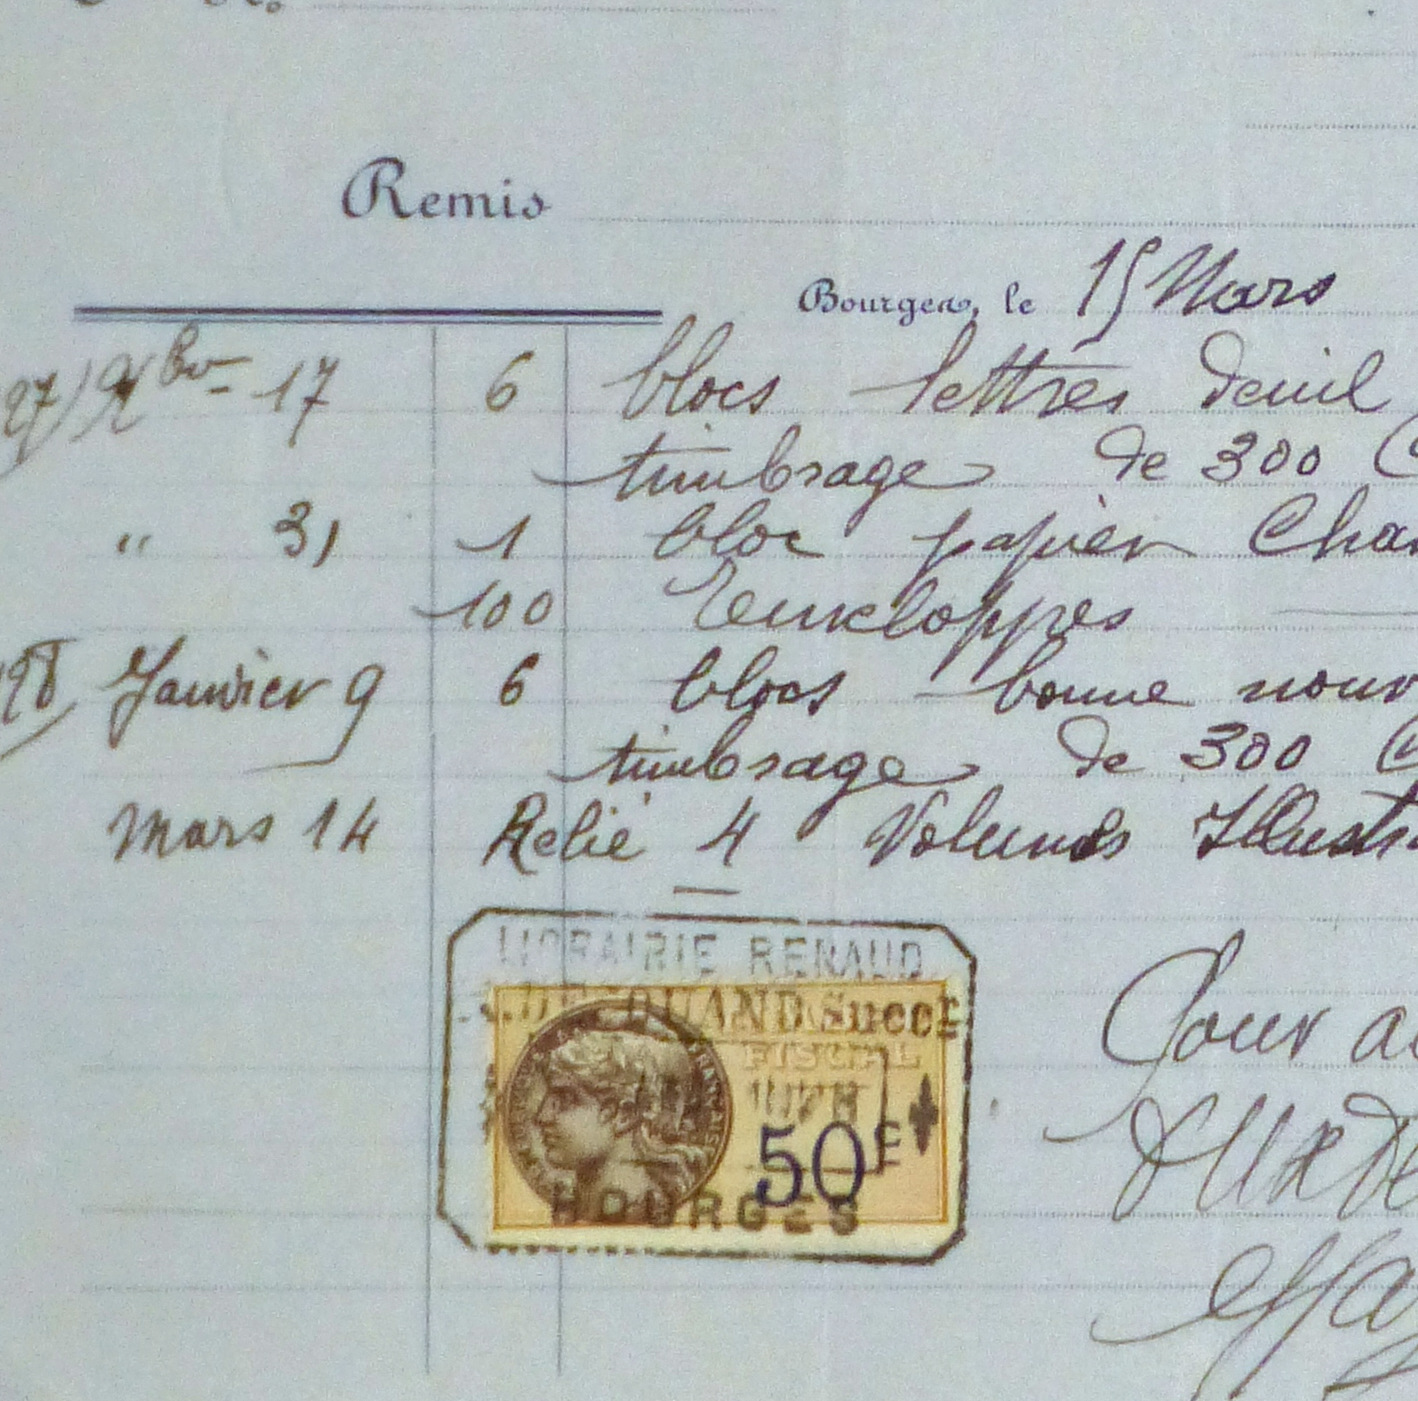 Remis
Bourges, le 15 Mars
27) Xbre 17 6 blocs lettres deuil
timbrage de 300
" 31 1 bloc papier Cha
100 Enveloppes
Janvier 9 6 blocs bonne nouv
timbrage de 300
Mars 14 Relié 4 Volumes Illust
LIBRAIRIE RENAUD
DURAND Succr
FISCAL
50c
BOURGES
Pour a